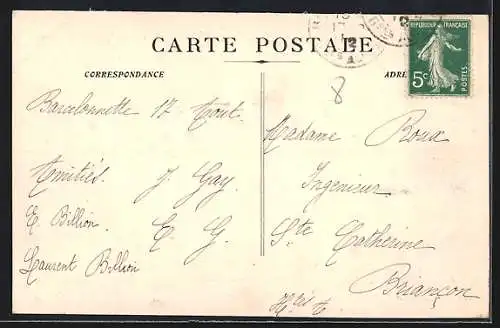 CARTE POSTALE
CORRESPONDANCE
ADRE
REPUBLIQUE FRANÇAISE
5c
POSTES
8
Barcelonnette 17 Aout.
Amitiés. J. Gay.
E. Billion. E. G.
Laurent Billion
Madame Roux
Ingenieur
Ste Catherine
Briançon